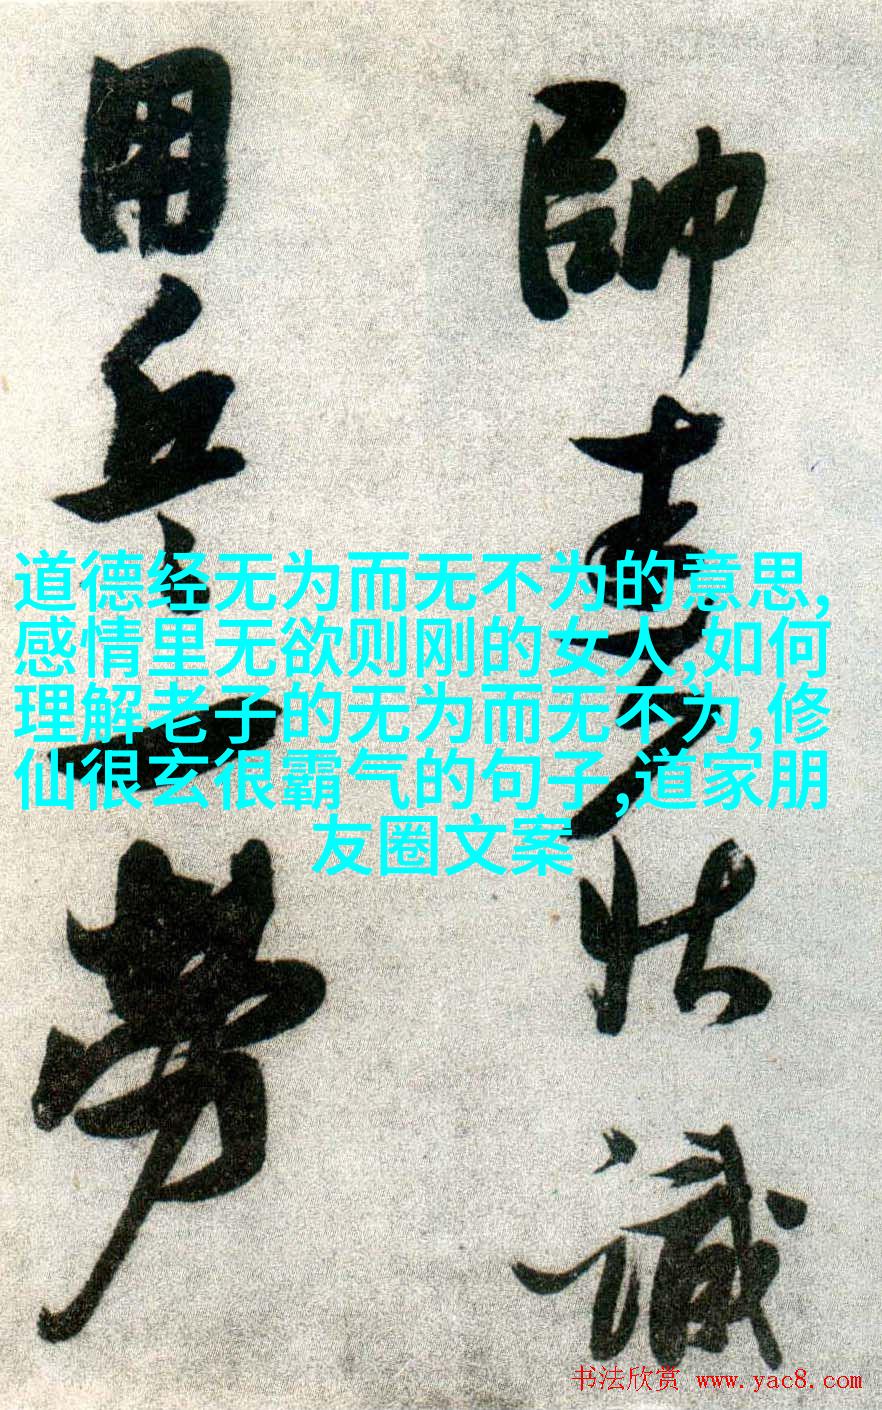 帥 壯 識
用 兵 一 勞
道德经无为而无不为的意思,
感情里无欲则刚的女人,如何
理解老子的无为而无不为,修
仙很玄很霸气的句子,道家朋
友圈文案
书法欣赏 www.yac8.com